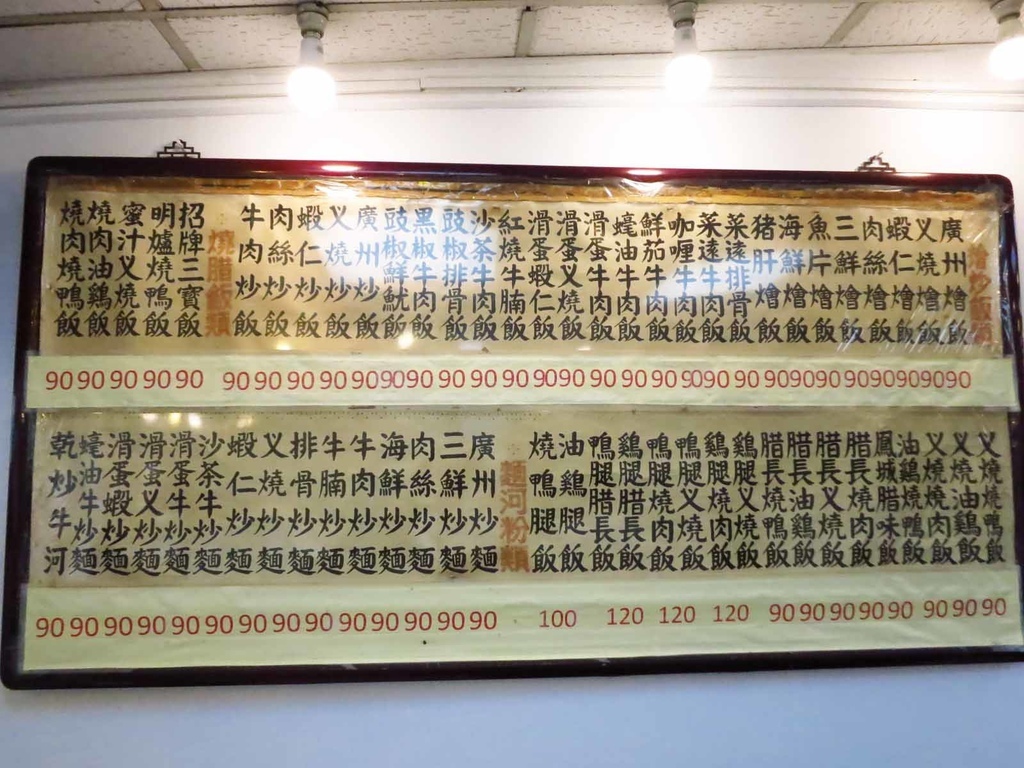 燴炒飯類
廣州燴飯
叉燒燴飯
蝦仁燴飯
肉絲燴飯
三鮮燴飯
魚片燴飯
海鮮燴飯
猪肝燴飯
菜遠排骨飯
菜遠牛肉飯
咖喱牛肉飯
鮮茄牛肉飯
蠔油牛肉飯
滑蛋牛肉飯
滑蛋叉燒飯
滑蛋蝦仁飯
紅燒牛腩飯
沙茶牛肉飯
豉椒排骨飯
黑椒牛肉飯
豉椒鮮魷飯
廣州炒飯
叉燒炒飯
蝦仁炒飯
肉絲炒飯
牛肉炒飯
燒腊飯類
招牌三寶飯
明爐燒鴨飯
蜜汁叉燒飯
燒肉油鷄飯
燒肉燒鴨飯
90 90 90 90 90 90 90 90 90 90 90 90 90 90 90 90 90 90 90 90 90 90 90 90 90 90 90 90 90 90 90
叉燒燒鴨飯
叉燒油鷄飯
叉燒燒肉飯
油鷄燒鴨飯
鳳城腊味飯
腊長燒肉飯
腊長叉燒飯
腊長油鷄飯
腊長燒鴨飯
鷄腿叉燒飯
鷄腿燒肉飯
鴨腿叉燒飯
鴨腿燒肉飯
鷄腿腊長飯
鴨腿腊長飯
油鷄腿飯
燒鴨腿飯
麵河粉類
廣州炒麵
三鮮炒麵
肉絲炒麵
海鮮炒麵
牛肉炒麵
牛腩炒麵
排骨炒麵
叉燒炒麵
蝦仁炒麵
沙茶牛炒麵
滑蛋牛炒麵
滑蛋叉炒麵
滑蛋蝦炒麵
蠔油牛炒麵
乾炒牛河
90 90 90 90 90 90 90 90 90 90 90 90 90 90 100 120 120 120 90 90 90 90 90 90 90 90